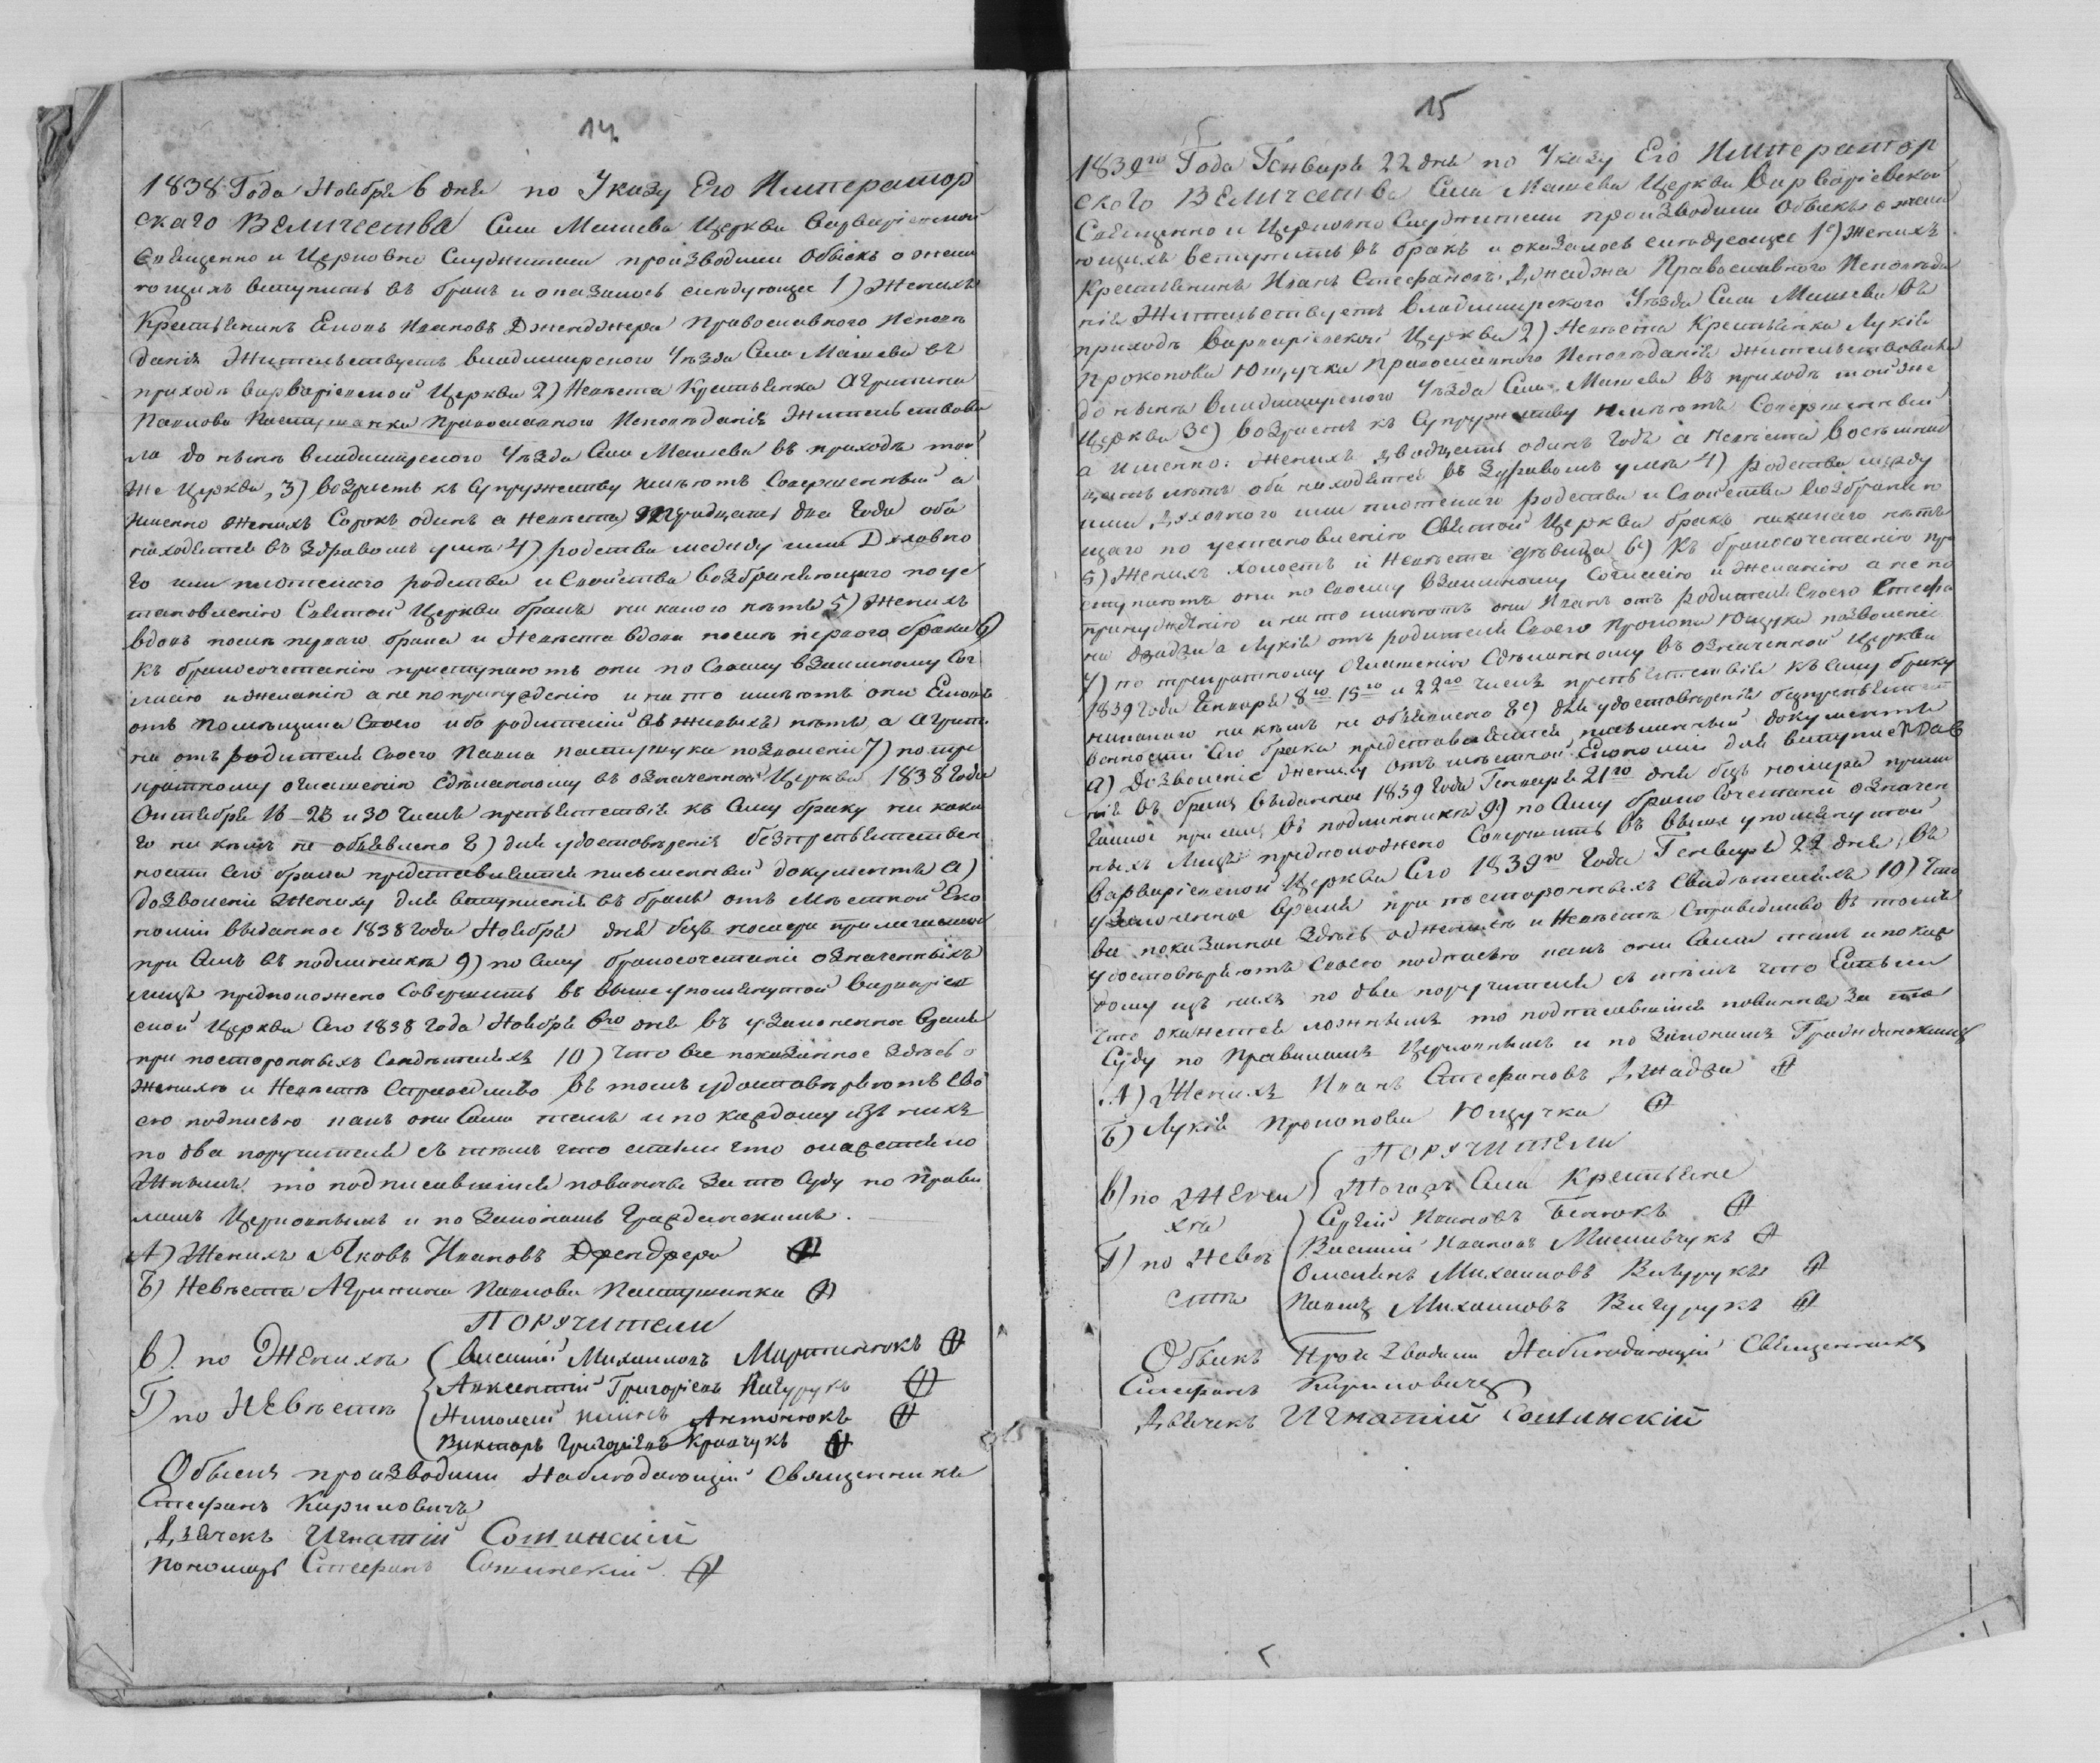 14
1838 Года Ноября 6 дня по Указу Его Император
скаго Величества Села Машева Церкви Варваріевской
Священно и Церковно Служители производили Обыскъ о жела
ющихъ вступить въ бракъ и оказалось слѣдующее 1) Женихъ
Крестьянинъ Иановъ Дженджера Православного Исповѣ
данія Жительствуетъ Владимирского Уѣзда Села Машева въ
приходѣ Варваріевской Церкви 2) Невѣста Крестьянка Агрипина
Павлова Пастушанка Православного Исповѣданія Жительствова
ла до нынѣ Владимирского Уѣзда Села Машева въ приходѣ той
же Церкви, 3) Возрастъ къ Супружеству имѣютъ Совершенный а
именно Женихъ Сорокъ одинъ а Невѣста Тридцать два Года оба
находятся въ Здравомъ умѣ 4) родства между ими Духовно
го или плотского родства и Свойства Возбраняющаго по ус
тановленію Святой Церкви бракъ никакого нѣтъ 5) Женихъ
вдовъ послѣ перваго брака и Невѣста вдова послѣ перваго брака 6)
Къ бракосочетанію приступаютъ они по Своему взаимному Сог
ласію и желанію а не по принужденію и на то имѣютъ они
отъ Помѣщика Своего ибо родителей въ живыхъ нѣтъ, а Агрипи
на отъ родителя Своего Павла Пастушука позволеніе 7) по тре
кратному оглашенію Сдѣланному въ означенной Церкви 1838 Года
Октября 16 - 23 и 30 Числа препятствія къ Сему браку ни како
го ни кѣмъ не объявлено 8) для удостовѣренія безпрепятствен
ности Сего брака представляется письменный документъ а)
Дозволеніе Жениху для вступленія въ бракъ отъ Мѣстной Эко
номіи выданное 1838 Года Ноября дня безъ номера прилагаемое
при Семъ въ подлинникѣ 9) по Сему бракосочетаніе означенныхъ
лицъ предположено Совершить въ выше упомянутой Варваріев
ской Церкви Сего 1838 Года Ноября 6го дня въ узаконенное время
при постороннихъ Свидѣтеляхъ 10) Что все показанное здѣсь о
Женихѣ и Невѣстѣ Справедливо въ томъ удостовѣряютъ Сво
ею подписью какъ они Сами такъ и по каждому изъ нихъ
по два поручителя съ тѣмъ что естьли что окажется ло
жнымъ то подписавшіися повинны за то Суду по Прави
ламъ Церковнымъ и по Законамъ Гражданскимъ.
А) Женихъ Яковъ Ивановъ Дженджера
Б) Невѣста Агрипина Павлова Пастушанка
Поручители
В) по Женихѣ Василій Михаиловъ Мартинюкъ
Авксентій Григоріевъ Вигурукъ
Г) по Невѣстѣ Николай Антонюкъ
Викторъ Григоріевъ Кравчукъ
Обыскъ производили Наблюдающій Священникъ
Стефанъ Кириловичъ
Дьячекъ Игнатій Сошинскій
Пономарь Стефанъ Сошинскій
15
1839го Года Генваря 22 дня по Указу Его Император
скаго Величества Села Машева Церкви Варваріевской
Священно и Церковно Служители производили Обыскъ о жела
ющихъ вступить въ бракъ и оказалось слѣдующее 1е) Женихъ
Крестьянинъ Иванъ Стефановъ Джаджа Православного Исповѣда
нія Жительствуетъ Владимирского Уѣзда Села Машева въ
приходѣ Варваріевской Церкви 2) Невѣста Крестьянка Лукія
Прокопова Ющучка Православного Исповѣданія Жительствовала
до нынѣ Владимирского Уѣзда Села Машева въ приходѣ той же
Церкви 3е) Возрастъ къ Супружеству имѣютъ Совершенный
а именно: Женихъ двадцать одинъ Годъ а Невѣста восемнад
цать лѣтъ оба находятся въ Здравомъ умѣ 4) родства между
ими Духовного или плотского родства и Свойства Возбраняю
щаго по установленію Святой Церкви бракъ никакого нѣтъ
5) Женихъ холостъ и Невѣста дѣвица 6е) Къ бракосочетанію при
ступаютъ они по Своему взаимному Согласію и желанію а не по
принужденію и на то имѣютъ они Иванъ отъ родителя Своего Стефа
на Джаджи а Лукія отъ родителя Своего Прокопа Ющука позволеніе
7) по трекратному оглашенію Сдѣланному въ означенной Церкви
1839 Года Генваря 8го 15го и 22го Числа препятствія къ Сему браку
никакого ни кѣмъ не объявлено 8е) для удостовѣренія безпрепятст
венности Сего брака представляется письменный документъ
а) Дозволеніе Жениху отъ мѣстной Экономіи для вступле
нія въ бракъ выданное 1839 Года Генваря 21го дня безъ номера прила
гаемое при семъ въ подлинникѣ 9) по Сему бракосочетаніе означен
ныхъ лицъ предположено Совершить въ выше упомянутой
Варваріевской Церкви Сего 1839го Года Генваря 22 дня въ
узаконенное время при постороннихъ Свидѣтеляхъ 10) Что
все показанное здѣсь о Женихѣ и Невѣстѣ Справедливо въ томъ
удостовѣряютъ Своею подписью какъ они Сами такъ и по каж
дому изъ нихъ по два поручителя съ тѣмъ что Естьли
что окажется ложнымъ то подписавшіися повинны за то
Суду по Правиламъ Церковнымъ и по Законамъ Гражданскимъ
А) Женихъ Иванъ Стефановъ Джаджа
Б) Лукія Прокопова Ющучка
Поручители
В) по Жени Тогожъ Села Крестьяне
хѣ Сергій Ивановъ Бенюкъ
Г) по Невѣ Василій Ивановъ
стѣ Омелянъ Михаиловъ Вигурукъ
Павелъ Михаиловъ Вигурукъ
Обыскъ Производили Наблюдающій Священникъ
Стефанъ Кириловичъ
Дьячекъ Игнатій Сошинскій